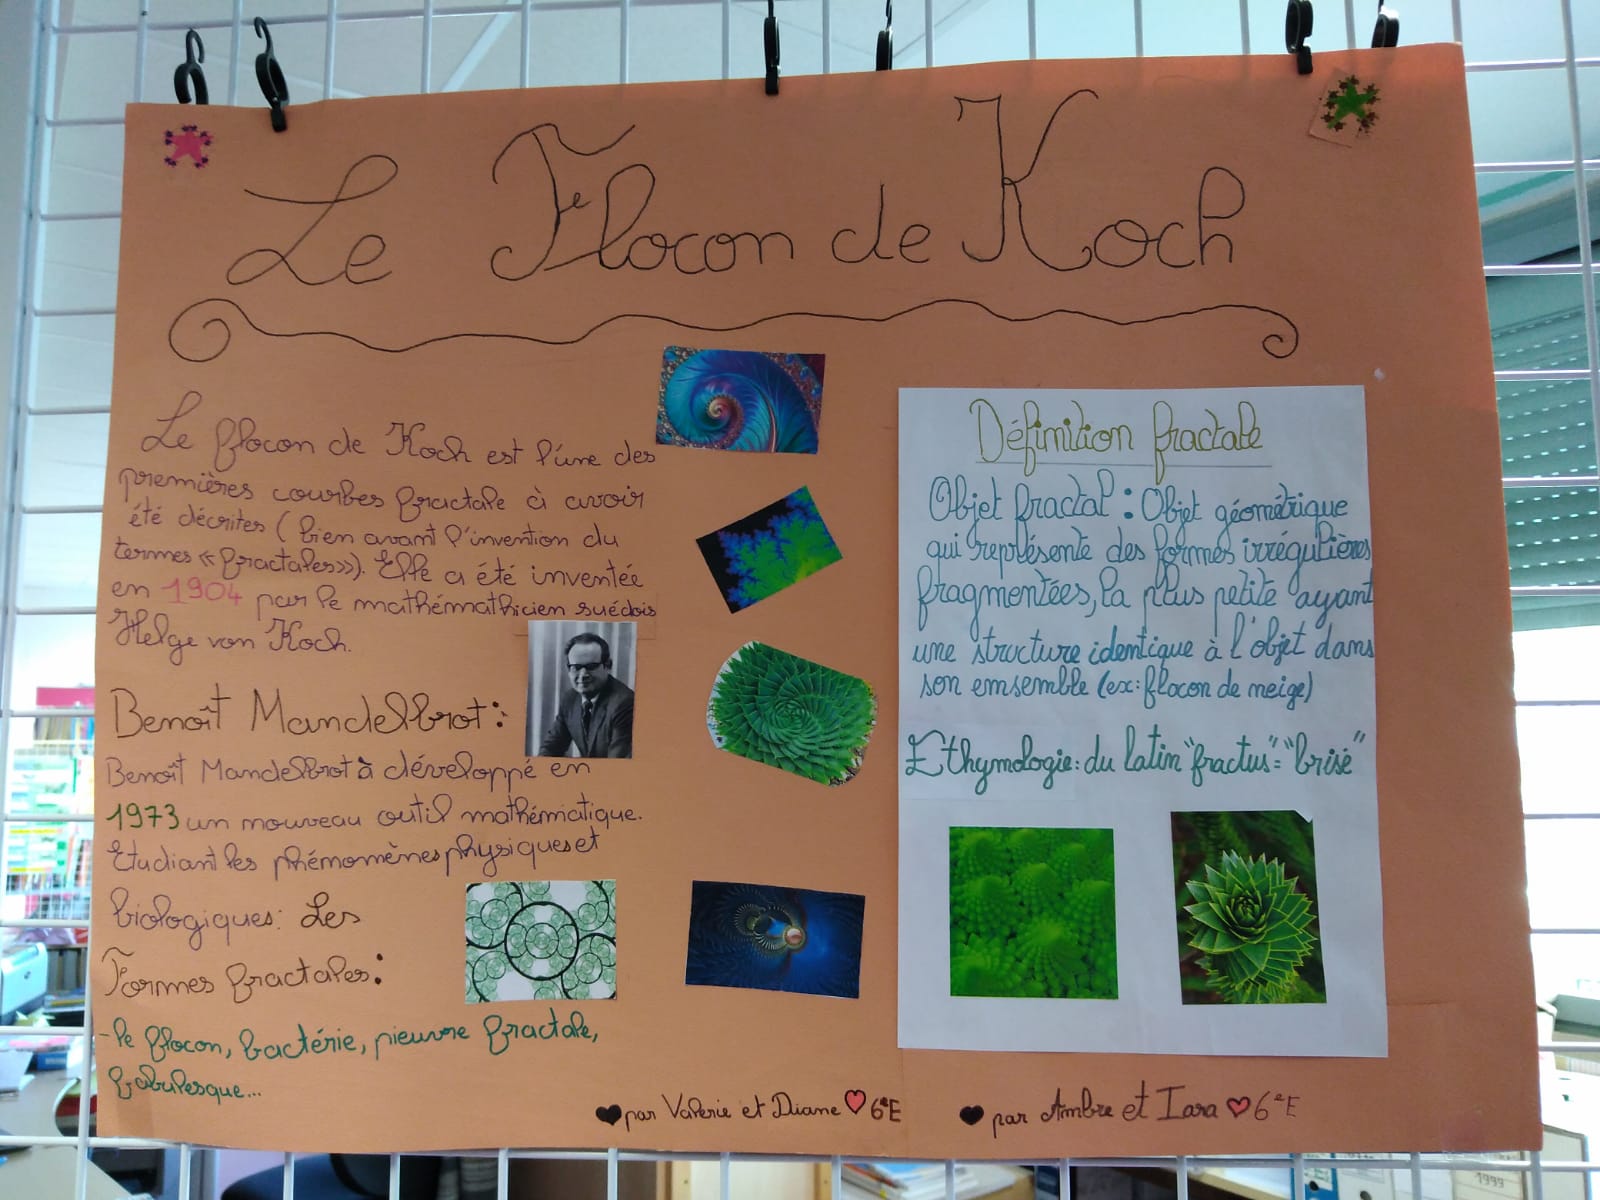 Le Flocon de Koch
Le flocon de Koch est l'une des
premières courbes fractale à avoir
été décrites (bien avant l'invention du
termes «fractales»). Elle a été inventée
en 1904 par le mathémathicien suédois
Helge von Koch.
Benoît Mandelbrot:
Benoît Mandelbrot à développé en
1973 un nouveau outil mathématique.
Etudiant les phénomènes physiques et
biologiques: Les
Formes fractales:
-le flocon, bactérie, pieuvre fractale,
par Valérie et Diane 6eE
Définition fractale
Objet fractal: Objet géométrique
qui représente des formes irrégulières
fragmentées, la plus petite ayant
une structure identique à l'objet dans
son emsemble (ex: flocon de neige)
Ethymologie: du latin "fractus"= "brisé"
par Ambre et Iara 6eE
1999